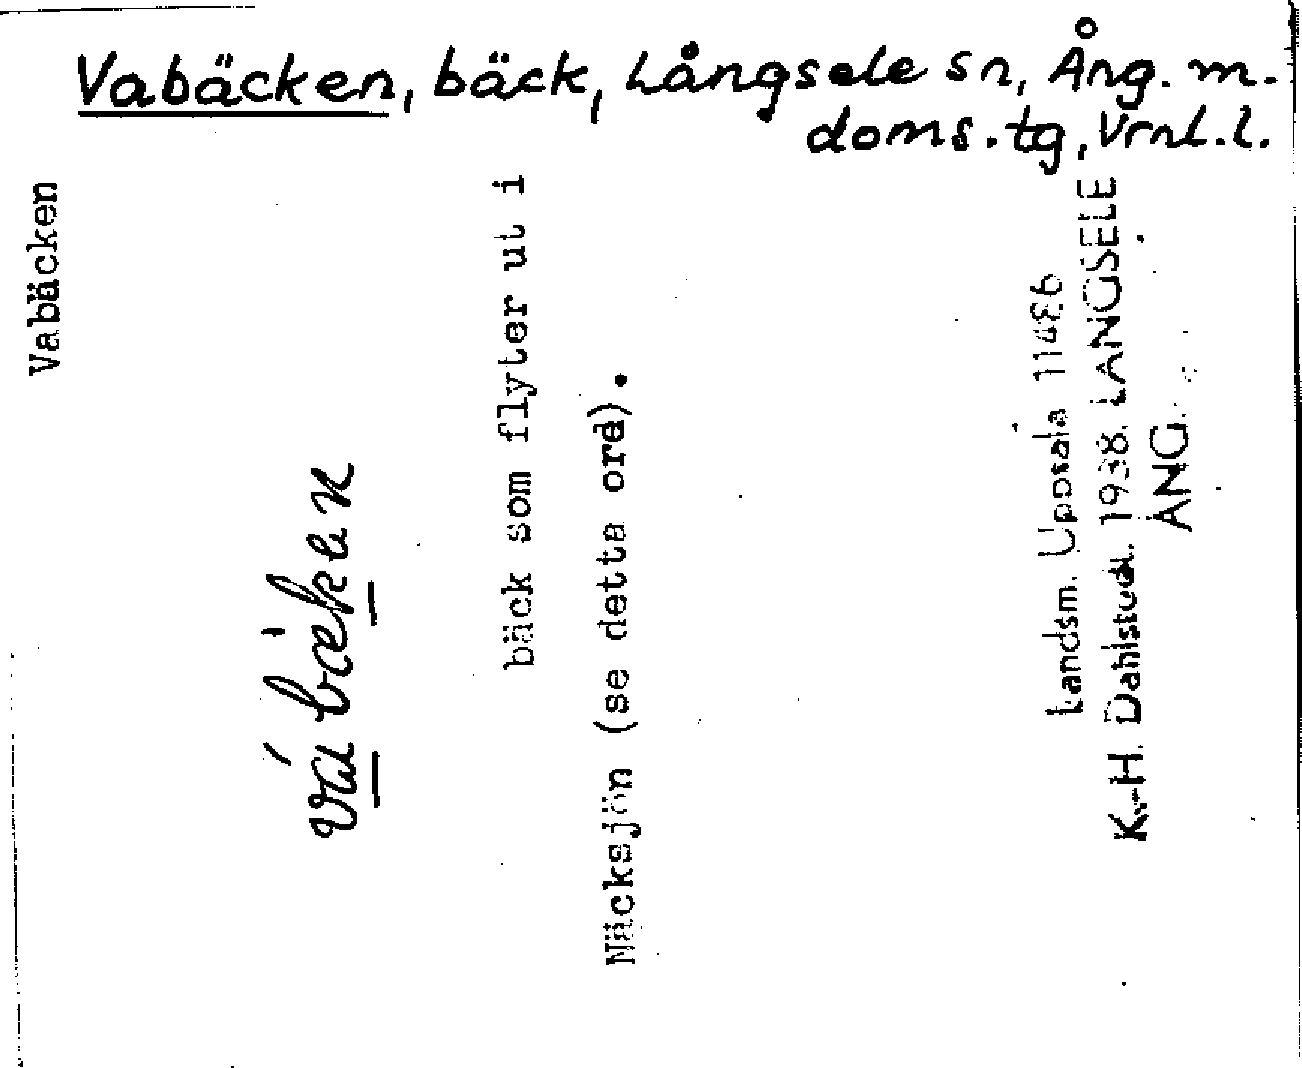 Vabäcken, bäck, Långsele sn, Ång. m.
doms.tg, Vrnl.l.
Vabäcken
vábæken
bäck som flyter ut i
Näcksjön (se detta ord).
Landsm. Uppsala 11486
K.-H. Dahlstedt. 1938. LÅNGSELE
ÅNG.